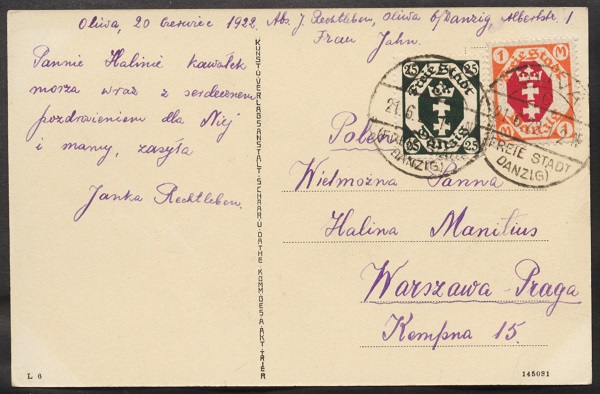 Oliwa, 20 Czerwiec 1922, Abs. J. Rechtleben, Oliwa b/Danzig, Albertstr. 1
Frau Jahn.
Pannie Halinie kawałek
morza wraz z serdecznem
pozdrowieniem dla Niej
i mamy, zasyła
Janka Rechtleben.
KUNST U. VERLAGSANSTALT SCHAAR U. DATHE KOMM. GES. A. AKT. TRIER
25 25
Freie Stadt
Danzig
25 25
1 M
Freie Stadt
Danzig
M 1
21.6
(FREIE STADT
DANZIG)
(FREIE STADT
DANZIG)
Polen
Wielmożna Panna
Halina Manitius
Warszawa-Praga
Kempna 15.
L 6
145081